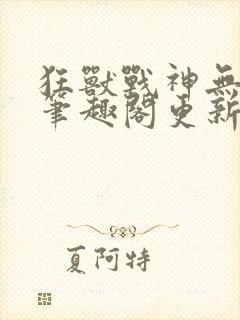 狂獸戰神無
筆趣閣更新
夏阿特